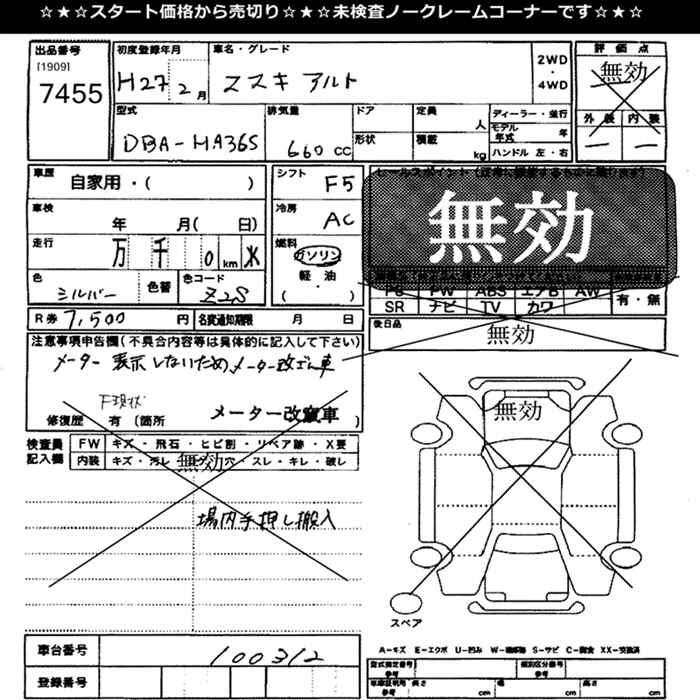 ☆★☆★スタート価格から売切り☆★☆★未検査ノークレームコーナーです☆★☆
出品番号 初度登録年月 車名・グレード 評価点
[1909]
7455 H27 2月 スズキ アルト 2WD・4WD 無効
型式 排気量 ドア 定員 人 ディーラー・並行 外装 内装
DBA-HA36S 660cc 形状 積載 kg モデル年式 年 — —
ハンドル 左・右
車歴 自家用・( ) シフト F5
車検 年 月( 日) 冷房 AC 無効
走行 万 千 0 km ※ 燃料 ガソリン
軽・油
( )
色 シルバー 色替 色コード Z2S
PS PW ABS エアB AW 有・無
SR ナビ TV カワ
R券 7,500円 名変通知期限 月 日 後日品 無効
注意事項申告欄(不具合内容等は具体的に記入して下さい)
メーター表示しないためメーター改ざん車
F現状
修復歴 有〔箇所 メーター改竄車 無効
検査員記入欄 FW キズ・飛石・ヒビ割・リペア跡・X要
内装 キズ・汚レ 無効 穴・スレ・キレ・破レ
場内手押し搬入
スペア
車台番号 100312
登録番号
A-キズ E-エクボ U-凹み S-サビ C-腐食 XX-交換済
型式指定番号 参考 類別区分番号 参考
長さ cm 幅 cm 高さ cm